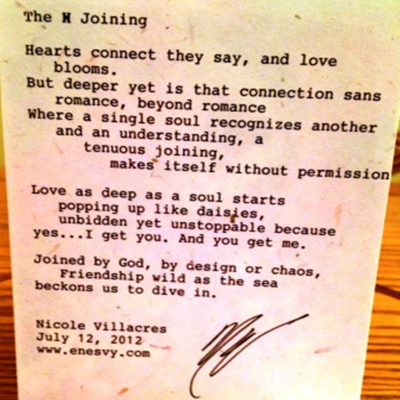 The M Joining
Hearts connect they say, and love
blooms.
But deeper yet is that connection sans
romance, beyond romance
Where a single soul recognizes another
and an understanding, a
tenuous joining,
makes itself without permission
Love as deep as a soul starts
popping up like daisies,
unbidden yet unstoppable because
yes...I get you. And you get me.
Joined by God, by design or chaos,
Friendship wild as the sea
beckons us to dive in.
Nicole Villacres
July 12, 2012
www.enesvy.com